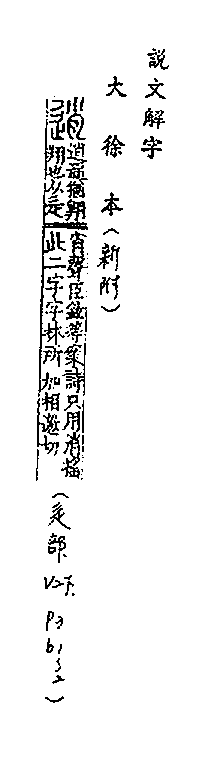 説文解字
大徐本(新附)
逍遙猶翱
翔也从辵
肖聲臣鉉等案詩只用消搖
此二字字林所加相邀切
(辵部 V2下 P3